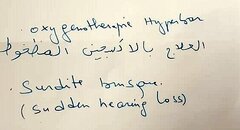 . oxygenotherapie Hyperbar
العلاج بالاكسجين المضغوط
. Surdite brusque.
(sudden hearing loss)